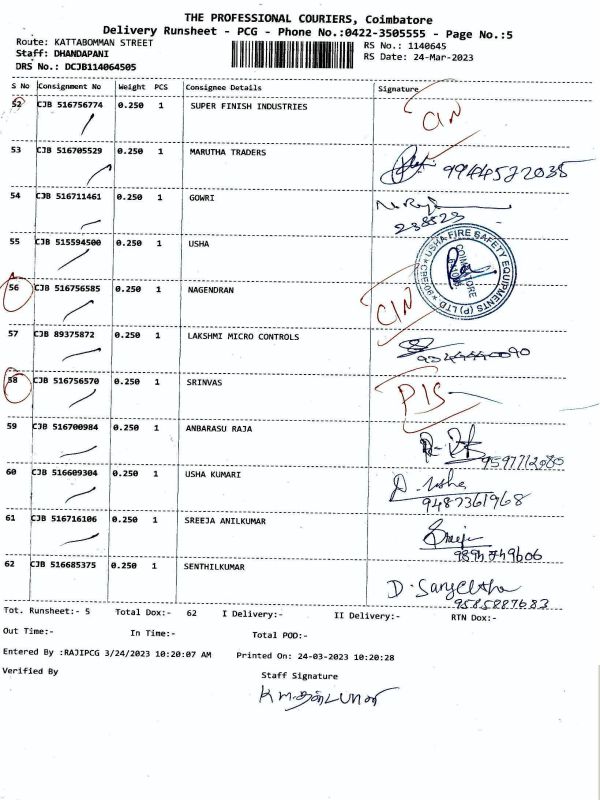 THE PROFESSIONAL COURIERS, Coimbatore
Delivery Runsheet - PCG - Phone No.:0422-3505555 - Page No.:5
Route: KATTABOMMAN STREET
RS No.: 1140645
Staff: DHANDAPANI
RS Date: 24-Mar-2023
DRS No.: DCJB114064505
S No Consignment No Weight PCS Consignee Details Signature
52 CJB 516756774 0.250 1 SUPER FINISH INDUSTRIES CIN
53 CJB 516705529 0.250 1 MARUTHA TRADERS 9944522035
54 CJB 516711461 0.250 1 GOWRI
238523
55 CJB 515594500 0.250 1 USHA
USHA FIRE SAFETY EQUIPMENTS (P) LTD
COIMBATORE
56 CJB 516756585 0.250 1 NAGENDRAN CIN
57 CJB 89375872 0.250 1 LAKSHMI MICRO CONTROLS
9344440090
58 CJB 516756570 0.250 1 SRINVAS PIS
59 CJB 516700984 0.250 1 ANBARASU RAJA
9597712085
60 CJB 516609304 0.250 1 USHA KUMARI D. Usha
9487361968
61 CJB 516716106 0.250 1 SREEJA ANILKUMAR Sreeja
9894749606
62 CJB 516685375 0.250 1 SENTHILKUMAR D. Sangeetha
9585887683
Tot. Runsheet:- 5 Total Dox:- 62 I Delivery:- II Delivery:- RTN Dox:-
Out Time:- In Time:- Total POD:-
Entered By :RAJIPCG 3/24/2023 10:20:07 AM Printed On: 24-03-2023 10:20:28
Verified By Staff Signature